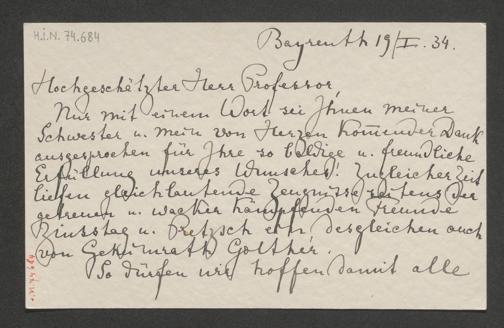 H.I.N. 74.684
Bayreuth 19/I. 34.
Hochgeschätzter Herr Professor,
Nur mit einem Wort sei Ihnen meiner
Schwester u. mein von Herzen kom̅ender Dank
ausgesprochen für Ihre so baldige u. freundliche
Erfüllung unseres Wunsches! Zu gleicher Zeit
liefen gleichlautende Zeugnisse seitens der
getreuen u. wacker kämpfenden Freunde
u. Pretzsch ein, desgleichen auch
von Geheimrath Golther.
So dürfen wir hoffen damit alle